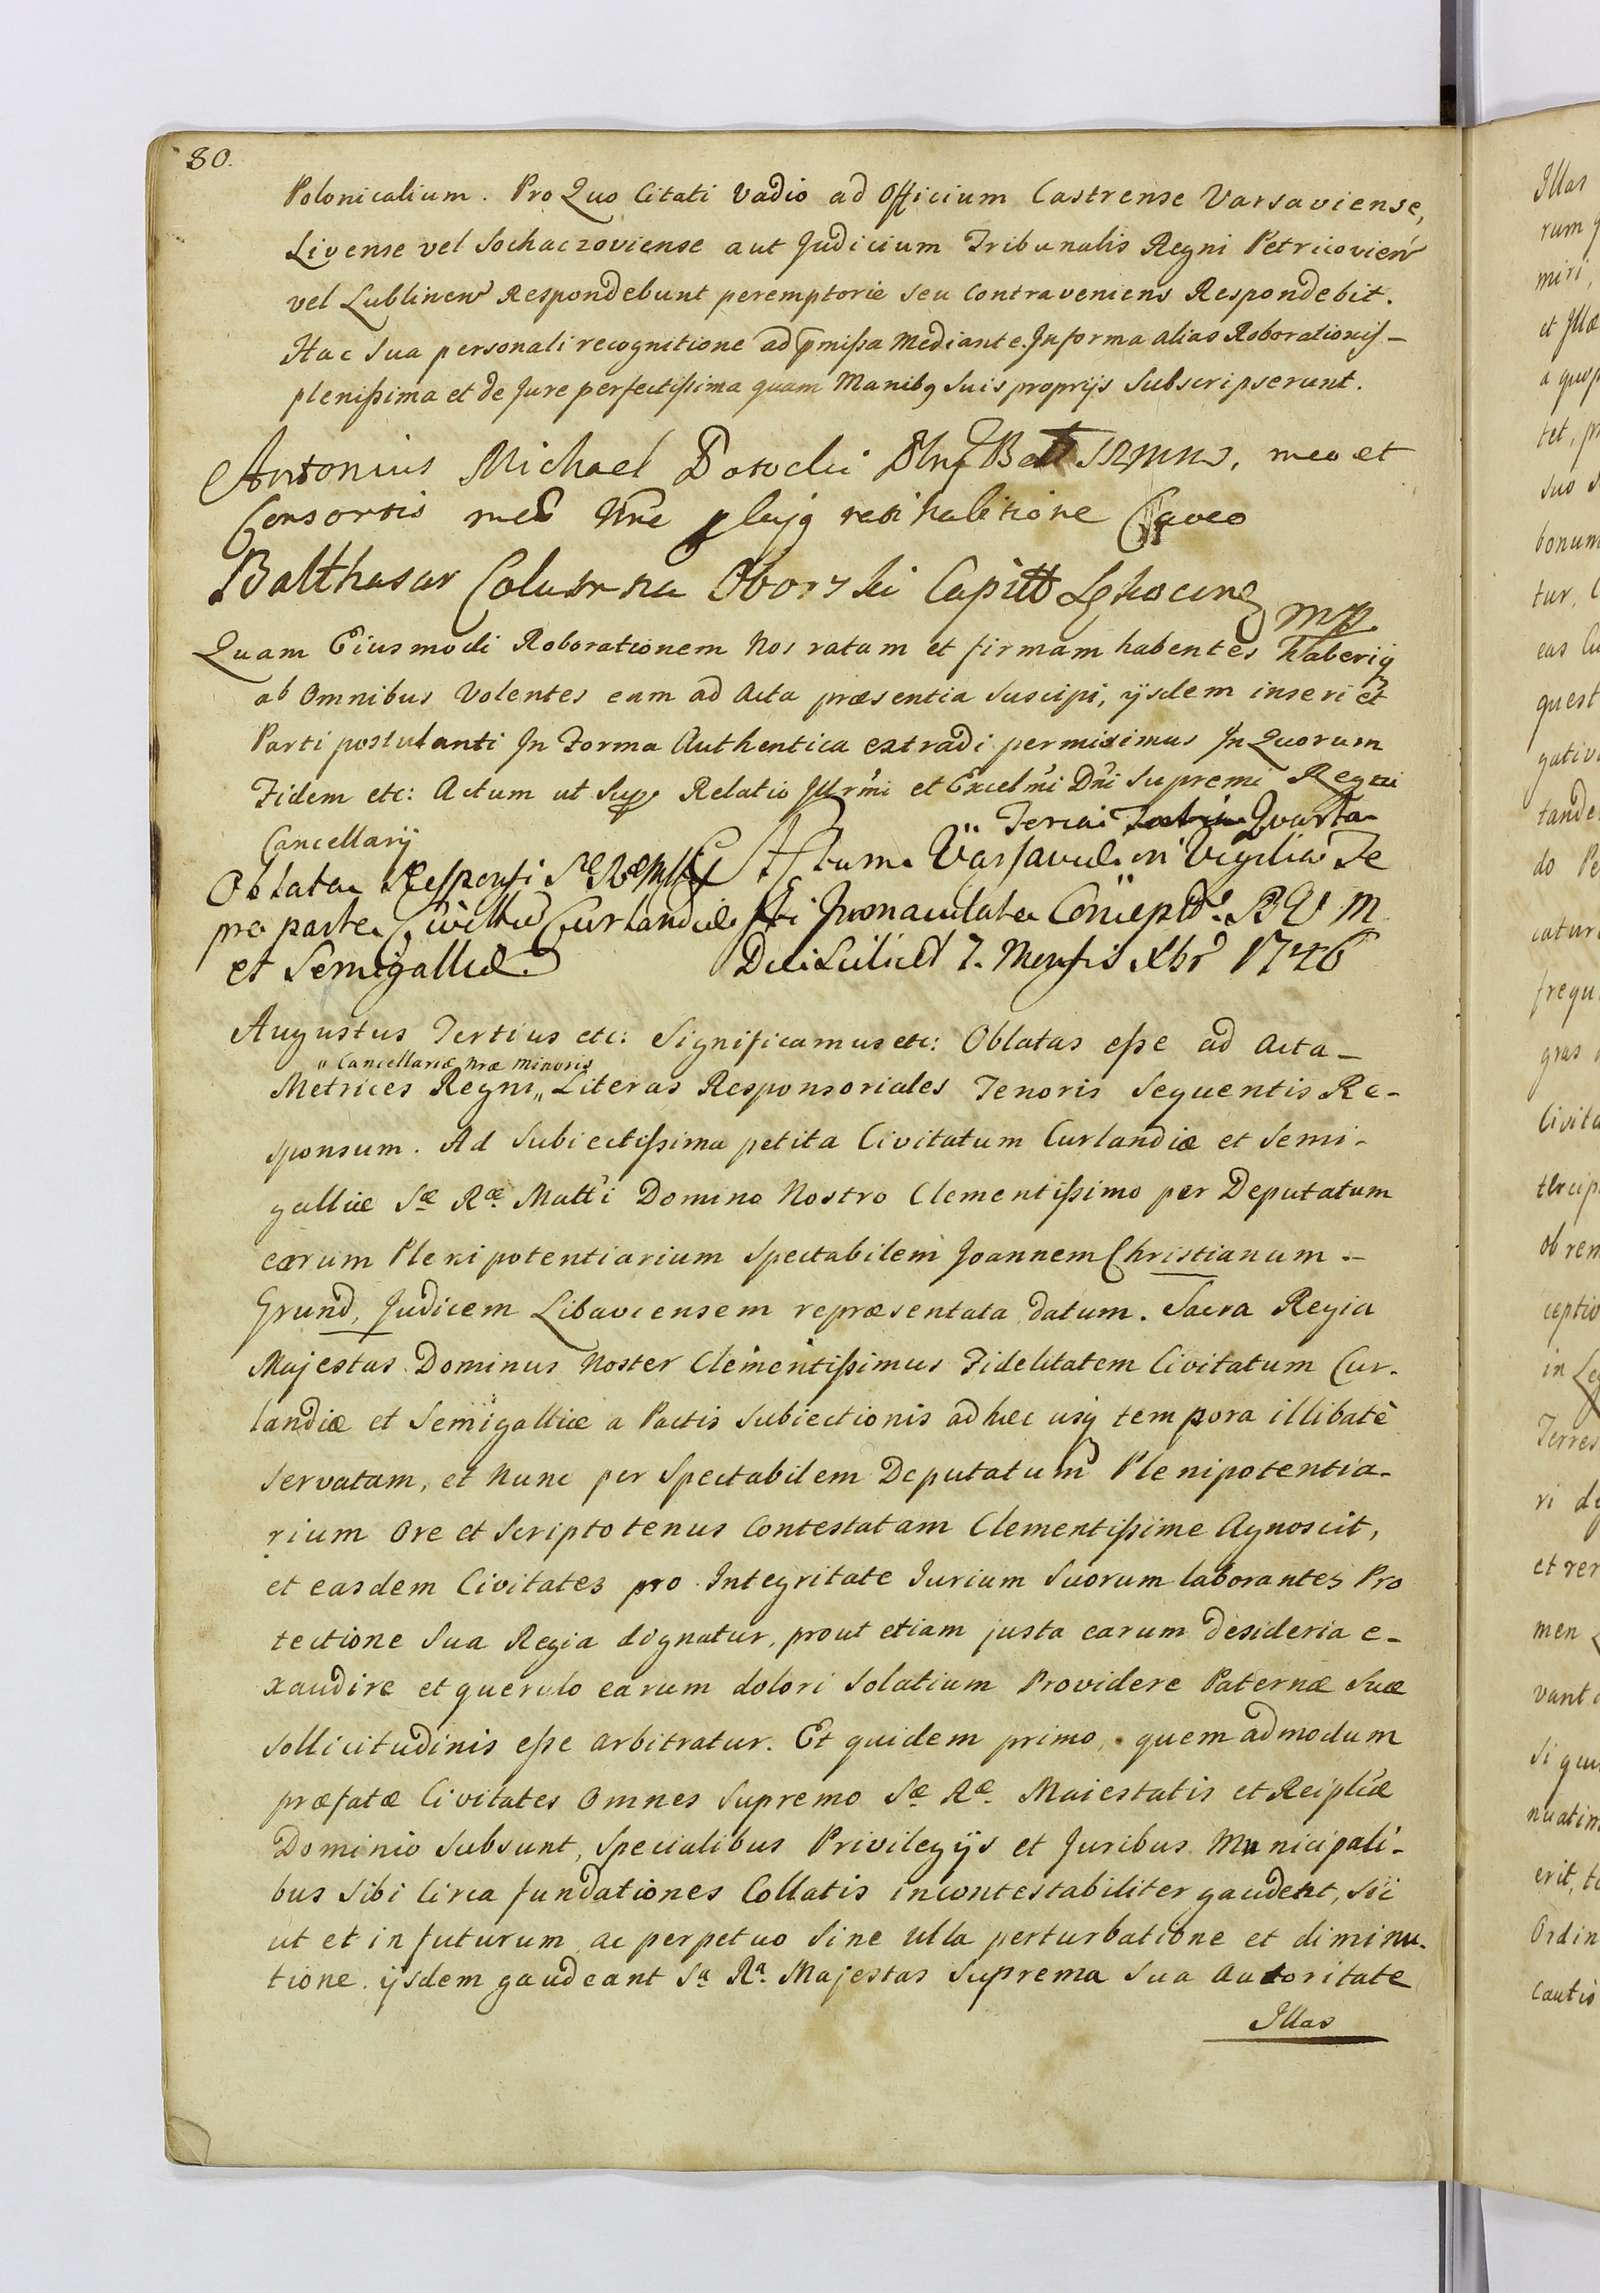 80.
Polonicalium. Pro Quo Citati Vadio ad Officium Castrense Varsaviense,
Livense vel Sochaczoviense aut Judicium Tribunalis Regni Petricovien
vel Lublinen Respondebunt peremptorie seu Contraveniens Respondebit.
Hac sua personali recognitione ad pmißa Mediante. In forma alias Roborationis –
plenißima et de Jure perfectißima quam Manibq suis proprijs Subscripserunt.
Antonius Michael Potocki meo et
Consortis meo nomine
Balthasar Colunna Oborski Capitt
mp.
Quam Eiusmodi Roborationem Nos ratam et firmam habentes haberiq
ab Omnibus Volentes eam ad Acta præsentia Suscipi, ijsdem inseri et
Parti postulanti In Forma Authentica extradi permisimus In Quorum
Fidem etc: Actum ut Sup. Relatio Illrmi et Excelmi Dni Supremi Regni
Cancellarij
Feria Quarta
Oblata Responsi Sæ Ræ Mttis
pro parte Civittu Curlandiæ
et Semigalliæ.
Actum Varsaviæ in Vigilia Fe
sti Immaculatæ Concept. B V M
Die Scilicet 7. Mensis Xbr 1746
Augustus Tertius etc: Significamus etc: Oblatas eße ad Acta –
„ Cancellariæ Nræ Minoris
Metrices Regni „ Literas Responsoriales Tenoris Sequentis Re-
sponsum. Ad Subiectißima petita Civitatum Curlandiæ et Semi-
galliæ Sæ Ræ Matt'i Domino Nostro Clementißimo per Deputatum
earum Plenipotentiarium Spectabilem Joannem Christianum –
Grund, Judicem Libaviensem repræsentata datum. Sacra Regia
Majestas Dominus Noster Clementißimus Fidelitatem Civitatum Cur-
landiæ et Semigalliæ a Pactis Subiectionis ad hæc usq tempora illibatè
servatam, et Nunc per Spectabilem Deputatum Plenipotentia-
rium Ore et Scriptotenus Contestatam Clementißime Agnoscit,
et easdem Civitates pro Integritate Jurium Suorum laborantes Pro
tectione Sua Regia dignatur, prout etiam justa earum desideria e-
xaudire et querulo earum dolori Solatium Providere Paternæ Suæ
sollicitudinis eße arbitratur. Et quidem primo, quem admodum
præfatæ Civitates Omnes Supremo Sæ Ræ. Maiestatis et Reiplicæ
Dominio Subsunt, Specialibus Privilegijs et Juribus Municipali-
bus Sibi Circa fundationes Collatis incontestabiliter gaudent, Sic
ut et in futurum ac perpetuo Sine ulla perturbatione et diminu-
tione ijsdem gaudeant Sa Ra. Majestas Suprema Sua Autoritate
Illas
Illas
rum
miri,
et Illæ
tet, pr
suo
bonum
tur,
eas
quest
gativ
tande
do
catur
frequ
gras
Civita
ob rem
ceptio
in
Terres
ri
et
men
vant
Si
nuatim
erit,
Ordin